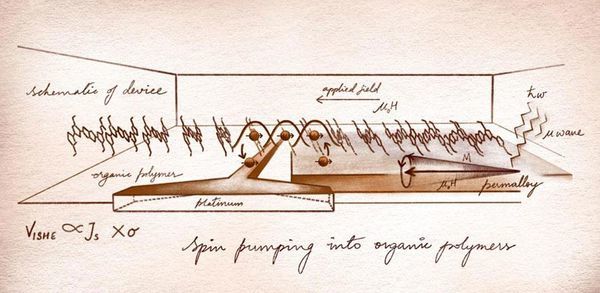 schematic of device
applied field
μ₀H
ħω
μ wave
organic polymer
M
μ₀H
permalloy
platinum
VISHE ∝ Js × σ
Spin pumping into organic polymers